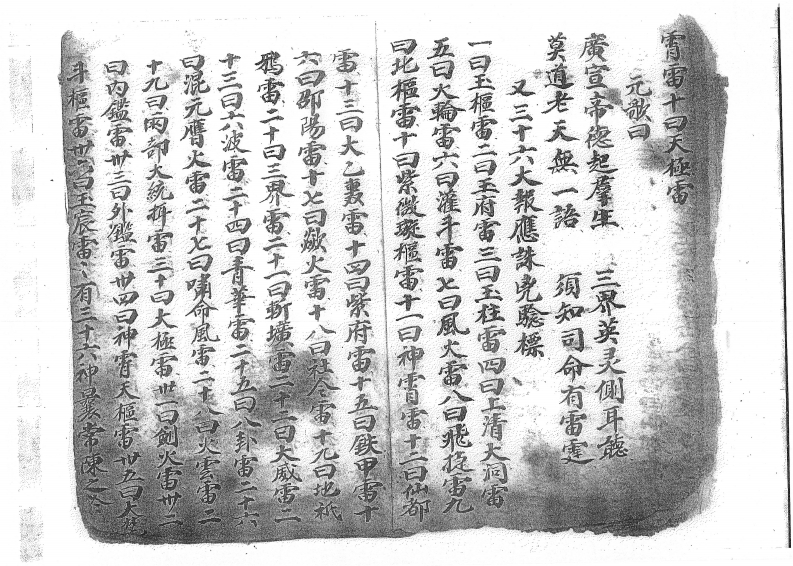 霄雷十曰天極雷
元歌曰
廣宣帝德起羣生　三界英灵側耳聽
莫道老天無一語　須知司命有雷霆
又三十六大報應誅兇驗標
一曰玉樞雷二曰玉府雷三曰玉柱雷四曰上清大洞雷
五曰火輪雷六曰灌斗雷七曰風火雷八曰飛捉雷九
曰北樞雷十曰紫微璇樞雷十一曰神霄雷十二曰仙都
雷十三曰太乙轟雷十四曰紫府雷十五曰鉄甲雷十
六曰邵陽雷十七曰歘火雷十八曰社令雷十九曰地祇
鴉雷二十曰三界雷二十一曰斬壙雷二十二曰大威雷二
十三曰六波雷二十四曰青華雷二十五曰八卦雷二十六
曰混元鷹火雷二十七曰嘯命風雷二十八曰火雲雷二
十九曰兩部大統攝雷三十曰太極雷卅一曰劍火雷卅二
曰內鑑雷卅三曰外鑑雷卅四曰神霄天樞雷卅五曰大梵
斗樞雷卅六曰玉宸雷雷有三十六神曩常陳之今